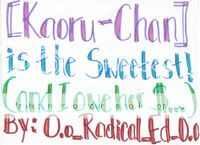 [Kaoru-Chan]
is the Sweetest!
(and I love her
By: O.o_Radical_Ed_O.o